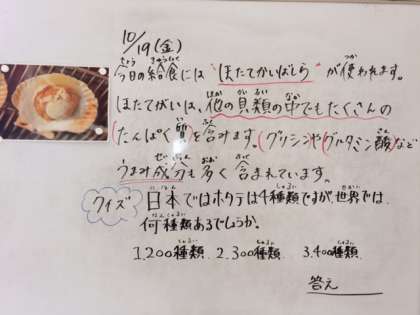 10/19(金)
今日の給食には"ほたてかいばしら"が使われます。
ほたてがいは、他の貝類の中でもたくさんの
たんぱく質を含みます。(グリシンやグルタミン酸)など
うまみ成分も多く含まれています。
クイズ 日本ではホタテは4種類ですが、世界では、
何種類あるでしょうか。
1.200種類 2.300種類 3.400種類
答え